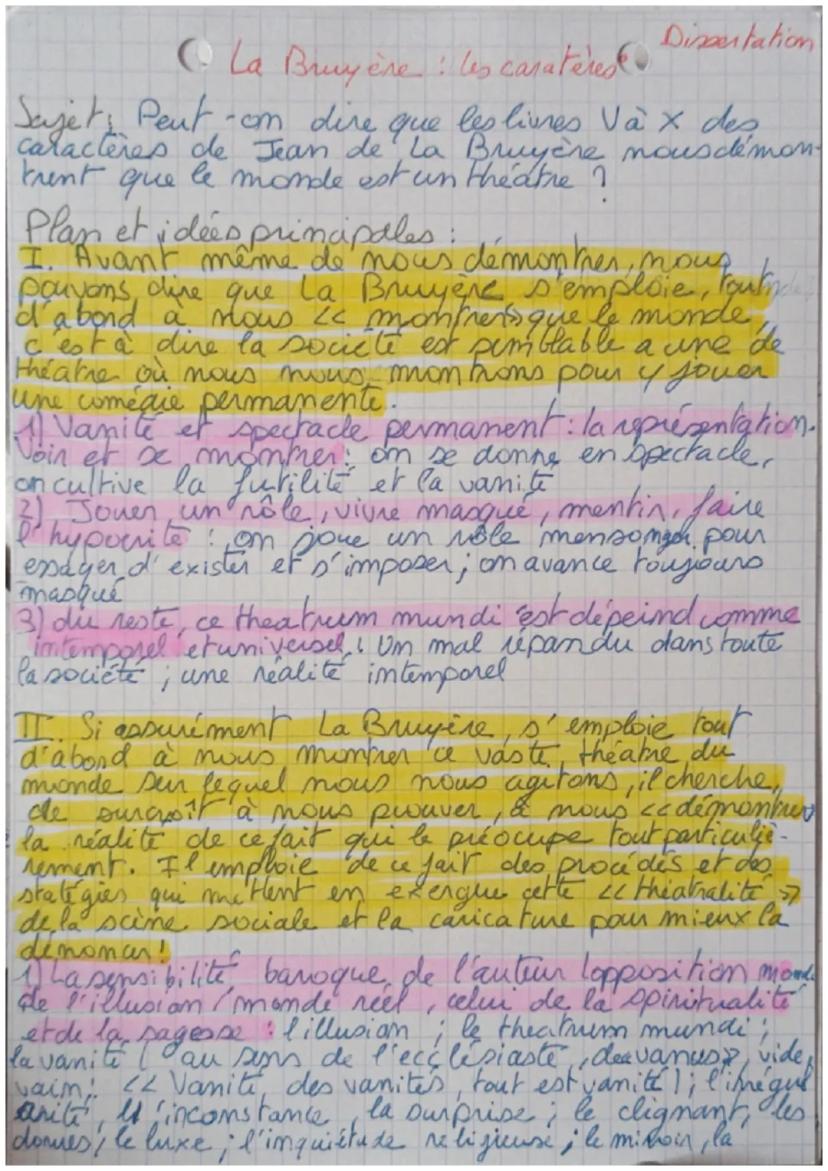 Dissertation
La Bruyère : les caratères
Sujet : Peut-on dire que les livres V à X des
caractères de Jean de La Bruyère nous démon-
trent que le monde est un théâtre ?
Plan et idées principales :
I. Avant même de nous démontrer, nous
pouvons dire que La Bruyère s'emploie, tout
d'abord à nous << montrer >> que le monde,
c'est à dire la société est semblable a une de
théatre où nous nous montrons pour y jouer
une comédie permanente.
1) Vanité et spectacle permanent : la représentation.
Voir et se montrer : on se donne en spectacle,
on cultive la futilité et la vanité
2) Jouer un rôle, vivre masqué, mentir, faire
l'hypocrite : on joue un rôle mensonger pour
essayer d'exister et s'imposer ; on avance toujours
masqué
3) du reste, ce theatrum mundi est dépeind comme
intemporel et universel : Un mal répandu dans toute
la société ; une réalité intemporel
II. Si assurément La Bruyère, s'emploie tout
d'abord à nous montrer ce vaste théatre du
monde sur lequel nous nous agitons, il cherche,
de surcroît à nous prouver, à nous << démontrer
la réalité de ce fait qui le préocupe tout particuliè-
rement. Il emploie de ce fait des procédés et des
statégies qui mettent en exergue cette << théatralité >>
de la scène sociale et la caricature pour mieux la
dénoncer !
1) La sensibilité baroque de l'auteur l'opposition monde
de l'illusion / monde réel, celui de la spiritualité
et de la sagesse : l'illusion ; le theatrum mundi ;
la vanité ( au sens de l'ecclésiaste, vide,
vain : << Vanité des vanités, tout est vanité ) ; l'irrégul
arité, l'inconstance, la surprise ; le clignant, les
dorures, le luxe ; l'inquiétude religieuse ; le miroir, la